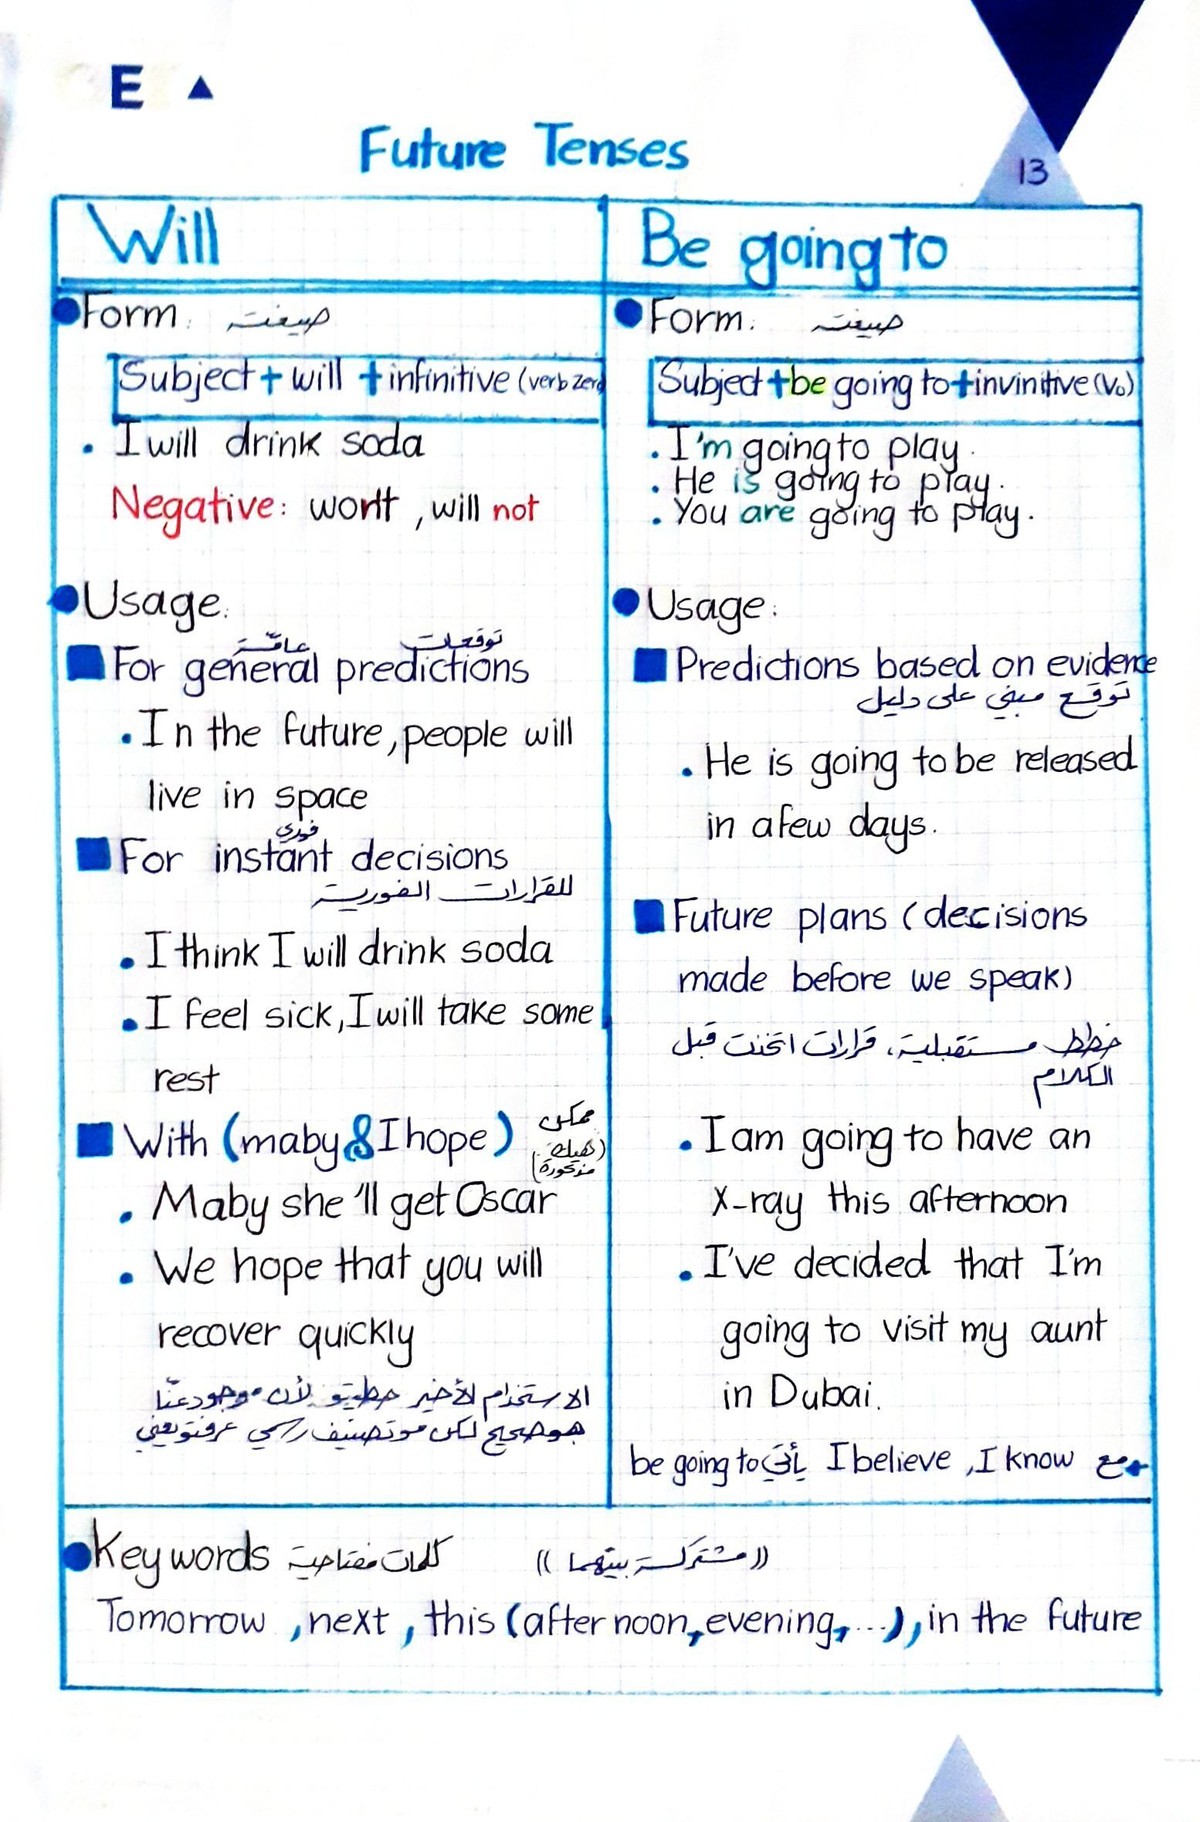 E
Future Tenses
13
Will
Form: صيغته
Subject + will + infinitive (verb zero
. I will drink soda
Negative: won't , will not
Usage:
عامّة توقعات
For general predictions
. In the future, people will
live in space
فوري
For instant decisions
للقرارات الفورية
. I think I will drink soda
. I feel sick, I will take some
rest
With (maby & I hope) ممكن
(هيك مذكورة)
. Maby she 'll get Oscar
. We hope that you will
recover quickly
الاستخدام الأخير حطيتو لأن موجود عنّا
هو صحيح لكن مو تصنيف رسمي عرفتو يعني
Be going to
Form: صيغته
Subject + be going to + invinitive (V0)
. I'm going to play.
. He is going to play.
. You are going to play.
Usage:
Predictions based on evidence
توقع مبني على دليل
. He is going to be released
in a few days.
Future plans (decisions
made before we speak)
خطط مستقبلية، قرارات اتخذت قبل
الكلام
. I am going to have an
X-ray this afternoon
. I've decided that I'm
going to visit my aunt
in Dubai.
be going to يأتي I believe , I know مع
Key words كلمات مفتاحية ((مشتركة بينهما))
Tomorrow , next , this (after noon, evening, ...), in the future